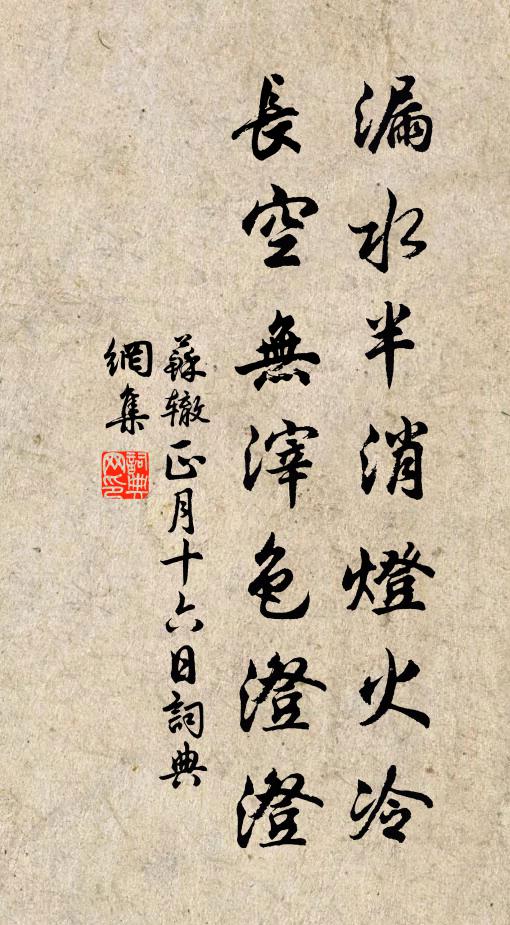 漏水半消燈火冷
長空無滓色澄澄
蘇辙正月十六日詞典
網集
詞典
网印